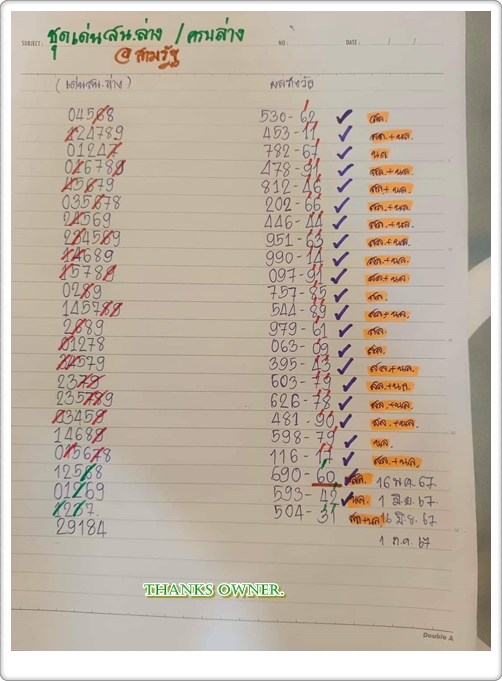 SUBJECT: ชุดเด่นสน.ล่าง / ครบล่าง NO: DATE: / /
@สามรัฐ
(เด่นสน.ล่าง) ผลรางวัล
04568 530-62 ✓ สล.
124789 453-11 ✓ สล.+นล.
01247 782-67 ✓ นล
026789 478-91 ✓ สล.+นล.
45679 812-46 ✓ สล+นล.
035678 202-66 ✓ สล.+นล.
24569 446-44 ✓ สล.+นล.
234589 951-63 ✓ สล.+นล.
14689 990-14 ✓ สล.+นล.
15789 097-91 ✓ สล.+นล.
0289 757-85 ✓ สล.
145789 544-89 ✓ สล.+นล.
2689 979-61 ✓ สล
01278 063-09 ✓ สล.
24579 395-43 ✓ สล.+นล.
2379 603-79 ✓ สล.+นล.
235789 626-78 ✓ สล.+นล.
03458 481-90 ✓ สล.+นล.
14689 598-79 ✓ นล.
015678 116-17 ✓ สล.+นล.
12568 690-60 ✓ สล. 16 พ.ค. 67
01269 593-42 ✓ นล. 1 มิ.ย. 67.
1267. 504-31 สล+นล 16 มิ.ย. 67
29184
1 ก.ค. 67
THANKS OWNER.
Double A